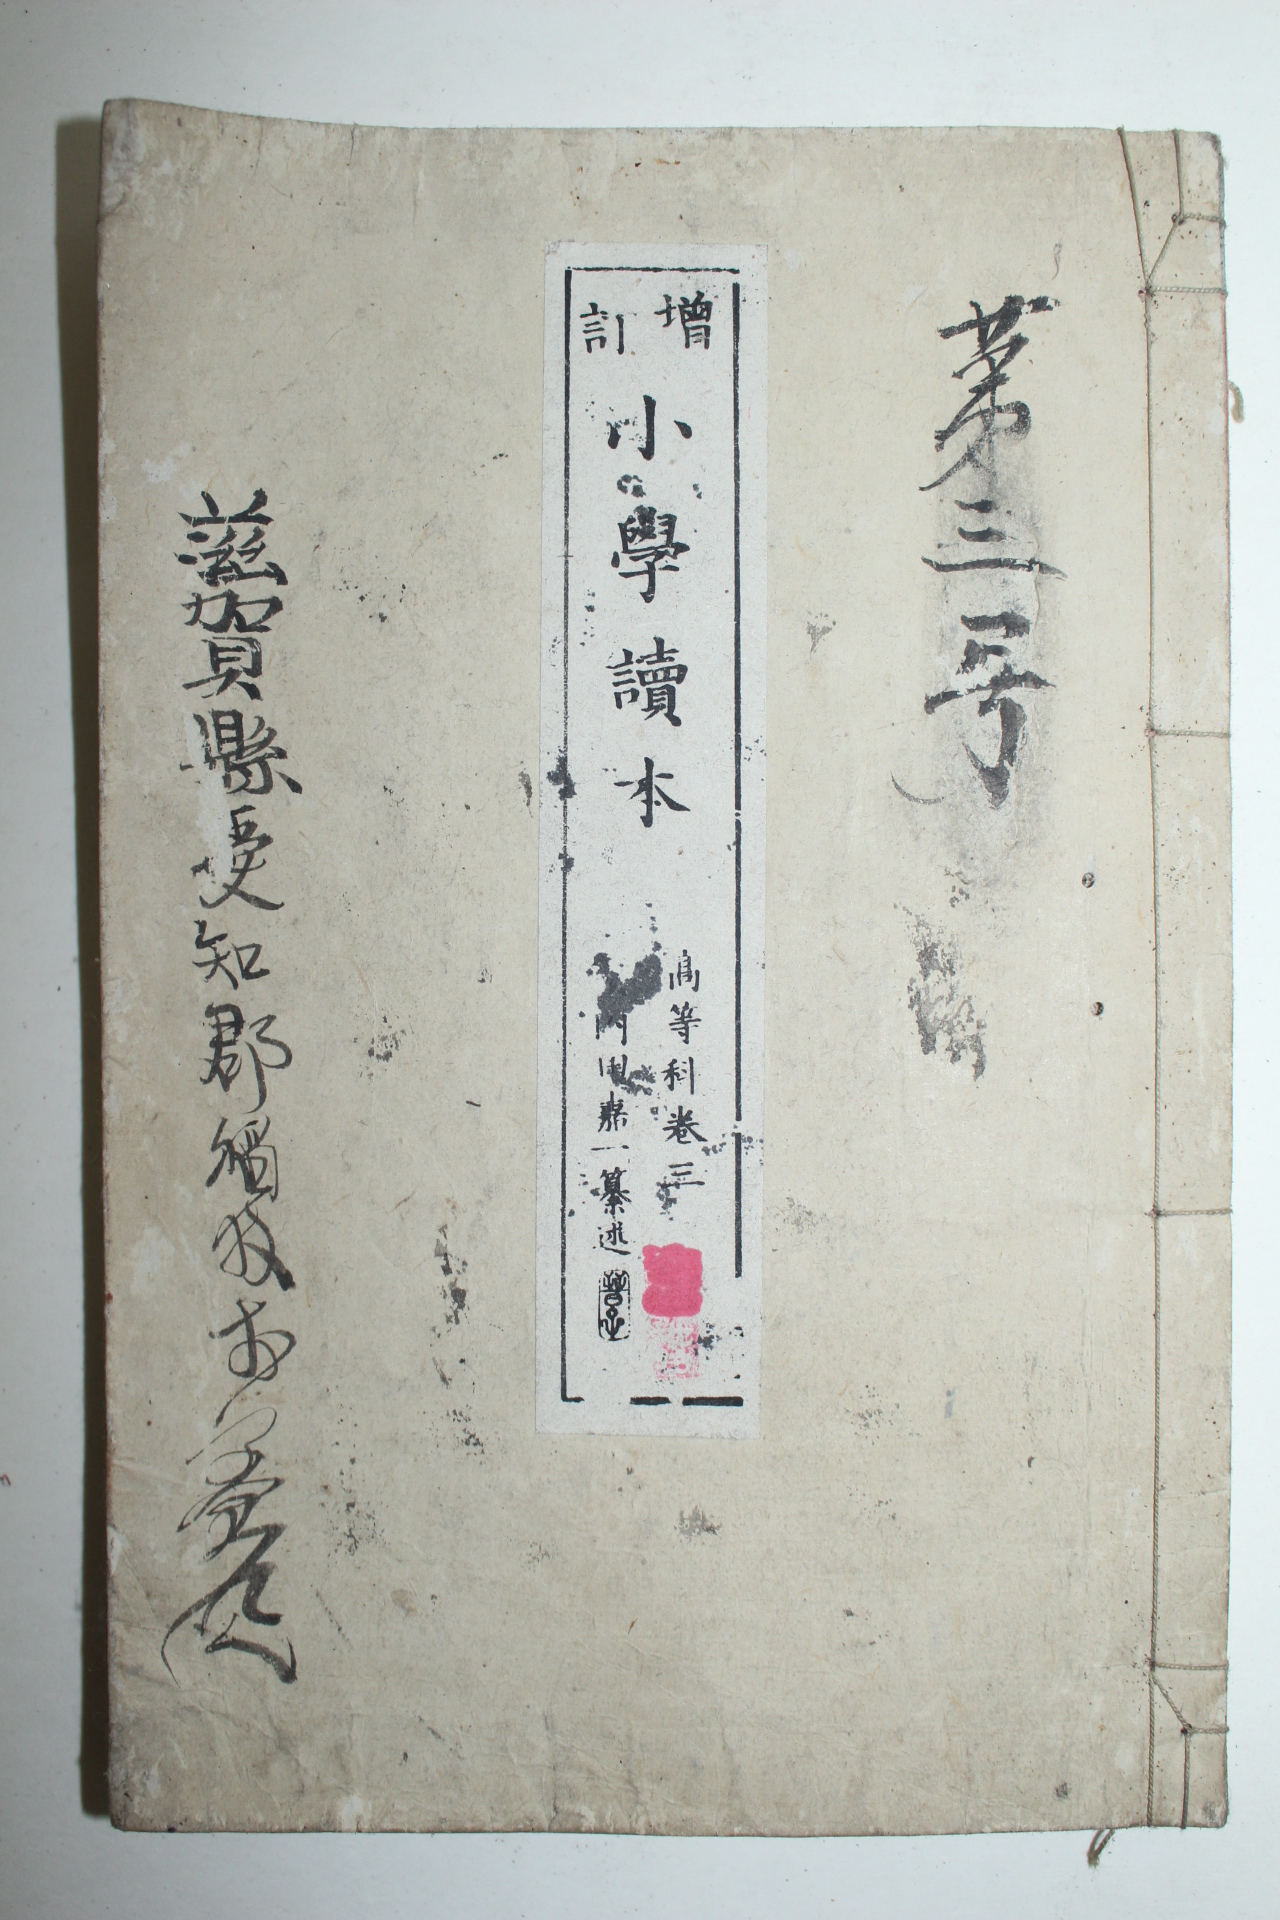 第三号
増訂
小學讀本
髙等科卷三
内田嘉一纂述
滋賀縣愛知郡